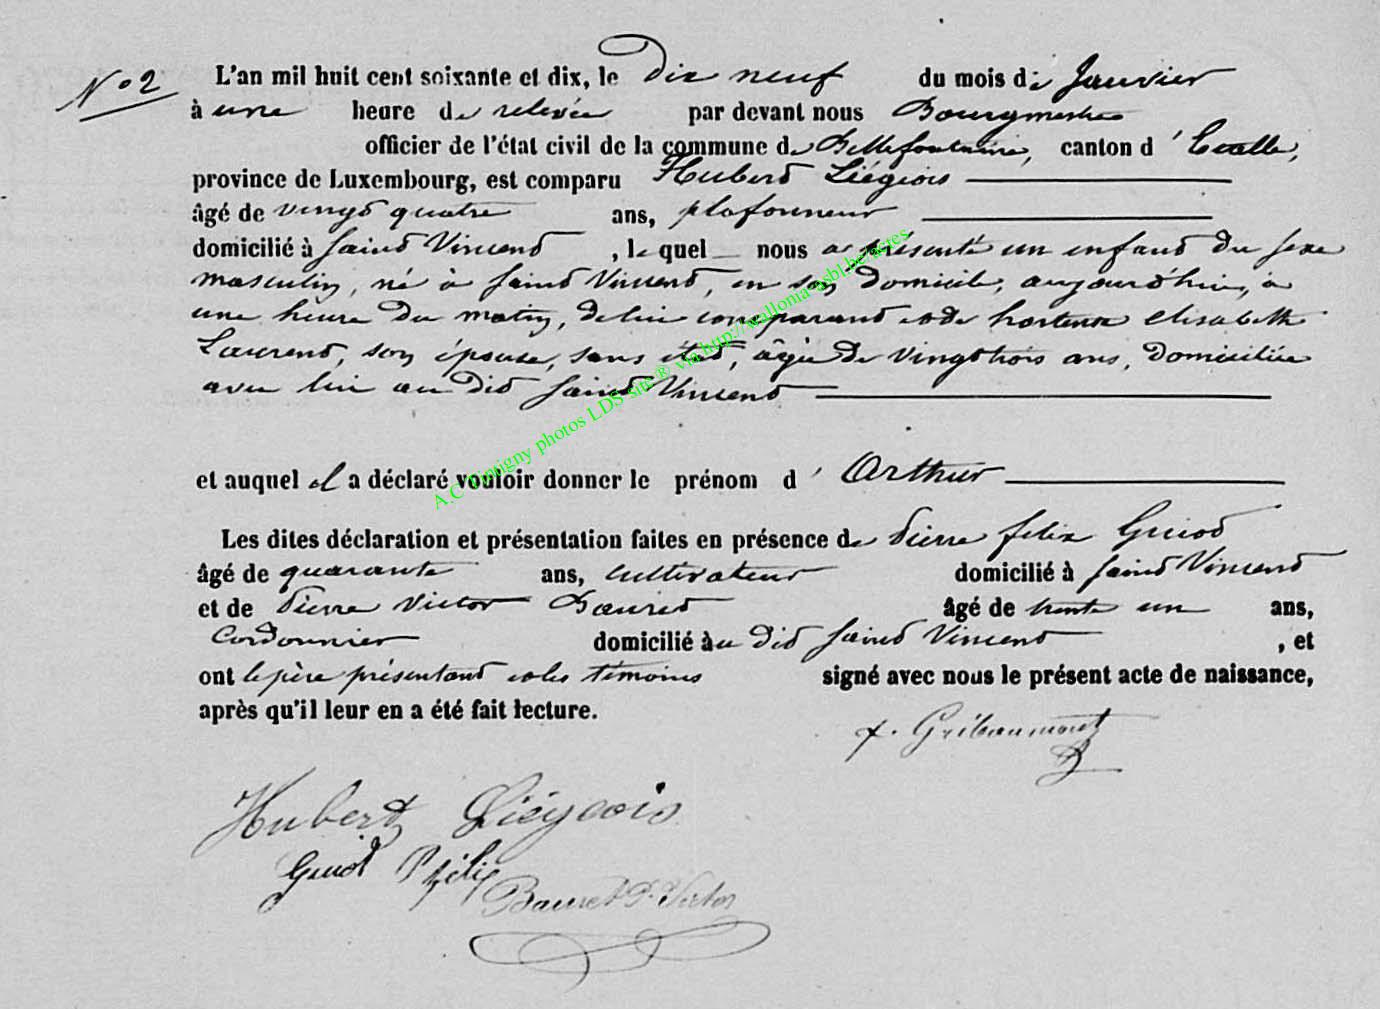 N° 2
L'an mil huit cent soixante et dix, le Dix neuf du mois de Janvier
à une heure de relevée par devant nous Bourgmestre
officier de l'état civil de la commune de Bellefontaine, canton d'Etalle,
province de Luxembourg, est comparu Hubert Liégeois
âgé de vingt quatre ans, plafonneur
domicilié à Saint Vincent, lequel nous a présenté un enfant du sexe
masculin, né à Saint Vincent, en son domicile, aujourd'hui, à
une heure du matin, de lui comparant et de hortense elisabeth
Laurent, son épouse, sans état, âgée de vingt trois ans, domiciliée
avec lui au dit Saint Vincent
et auquel il a déclaré vouloir donner le prénom d'Arthur
Les dites déclaration et présentation faites en présence de Pierre felix Guiot
âgé de quarante ans, cultivateur domicilié à Saint Vincent
et de Pierre Victor Bauret âgé de trente un ans,
Cordonnier domicilié à au dit Saint Vincent, et
ont le père présentant et les témoins signé avec nous le présent acte de naissance,
après qu'il leur en a été fait lecture.
f. Gribaumont
Hubert Liégeois
Guiot P félix
Bauret P. Victor
A.C Tintigny photos LDS site ® via http://wallonia-asbl.be/actes